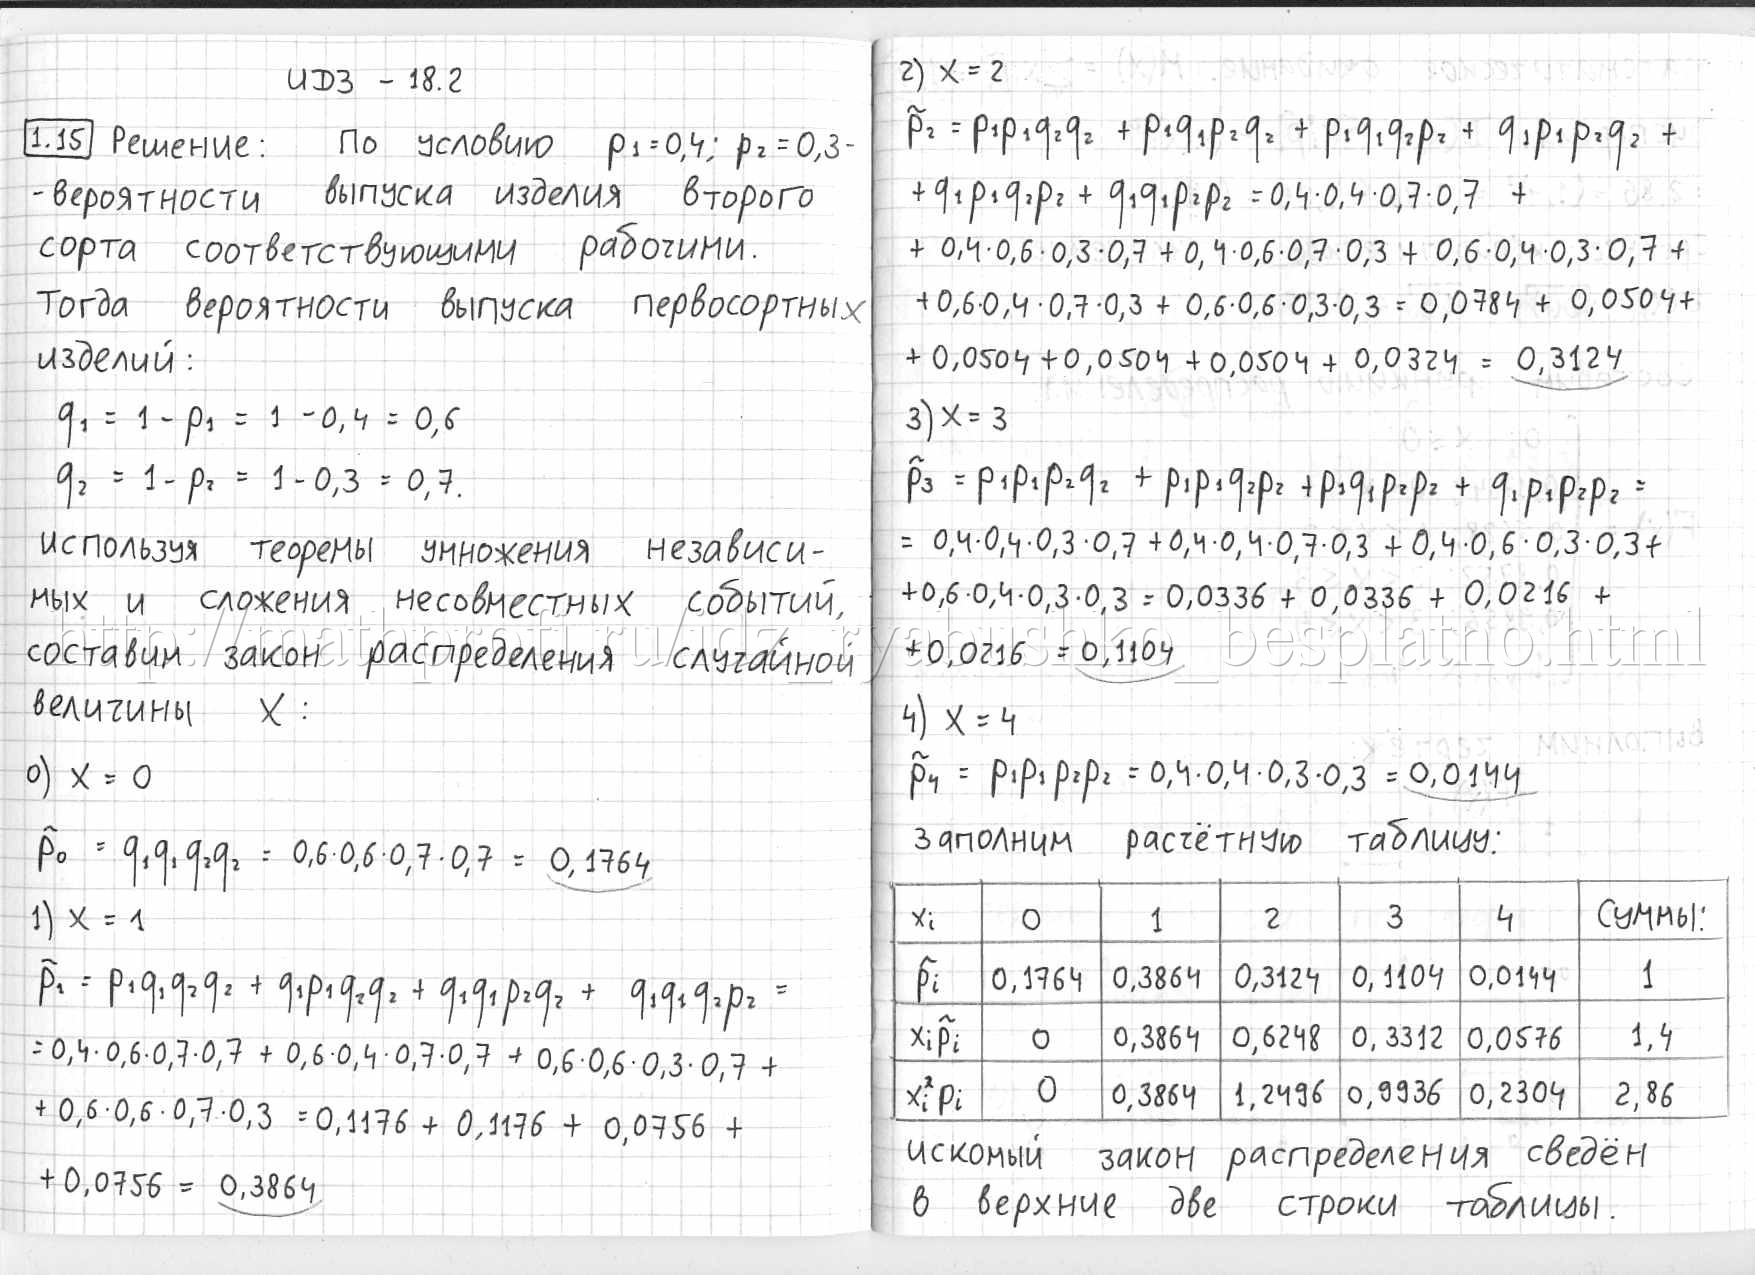 ИДЗ - 18.2
1.15 Решение: По условию p₁=0,4; p₂=0,3-
-вероятности выпуска изделия второго
сорта соответствующими рабочими.
Тогда вероятности выпуска первосортных
изделий:
q₁ = 1 - p₁ = 1 - 0,4 = 0,6
q₂ = 1 - p₂ = 1 - 0,3 = 0,7.
Используя теоремы умножения независи-
мых и сложения несовместных событий,
составим закон распределения случайной
величины X:
0) X = 0
p̃₀ = q₁q₁q₂q₂ = 0,6·0,6·0,7·0,7 = 0,1764
1) X = 1
p̃₁ = p₁q₁q₂q₂ + q₁p₁q₂q₂ + q₁q₁p₂q₂ + q₁q₁q₂p₂ =
=0,4·0,6·0,7·0,7 + 0,6·0,4·0,7·0,7 + 0,6·0,6·0,3·0,7 +
+ 0,6·0,6·0,7·0,3 = 0,1176 + 0,1176 + 0,0756 +
+ 0,0756 = 0,3864
2) X = 2
p̃₂ = p₁p₁q₂q₂ + p₁q₁p₂q₂ + p₁q₁q₂p₂ + q₁p₁p₂q₂ +
+ q₁p₁q₂p₂ + q₁q₁p₂p₂ = 0,4·0,4·0,7·0,7 +
+ 0,4·0,6·0,3·0,7 + 0,4·0,6·0,7·0,3 + 0,6·0,4·0,3·0,7 +
+ 0,6·0,4·0,7·0,3 + 0,6·0,6·0,3·0,3 = 0,0784 + 0,0504+
+ 0,0504 + 0,0504 + 0,0504 + 0,0324 = 0,3124
3) X = 3
p̃₃ = p₁p₁p₂q₂ + p₁p₁q₂p₂ + p₁q₁p₂p₂ + q₁p₁p₂p₂ =
= 0,4·0,4·0,3·0,7 + 0,4·0,4·0,7·0,3 + 0,4·0,6·0,3·0,3+
+0,6·0,4·0,3·0,3 = 0,0336 + 0,0336 + 0,0216 +
+0,0216 = 0,1104
http://mathprofi.ru/idz_ryabushko_besplatno.html
4) X = 4
p̃₄ = p₁p₁p₂p₂ = 0,4·0,4·0,3·0,3 = 0,0144
Заполним расчётную таблицу:
xᵢ 0 1 2 3 4 Суммы:
p̃ᵢ 0,1764 0,3864 0,3124 0,1104 0,0144 1
xᵢp̃ᵢ 0 0,3864 0,6248 0,3312 0,0576 1,4
xᵢ²pᵢ 0 0,3864 1,2496 0,9936 0,2304 2,86
Искомый закон распределения сведён
в верхние две строки таблицы.